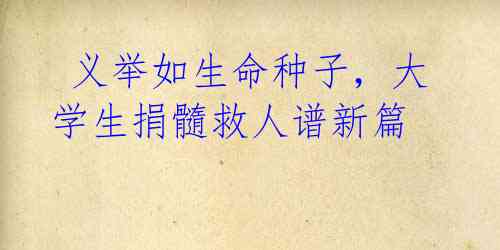 义举如生命种子，大
学生捐髓救人谱新篇